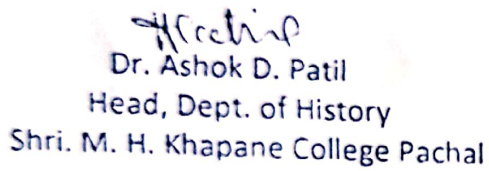 Dr. Ashok D. Patil
Head, Dept. of History
Shri. M. H. Khapane College Pachal